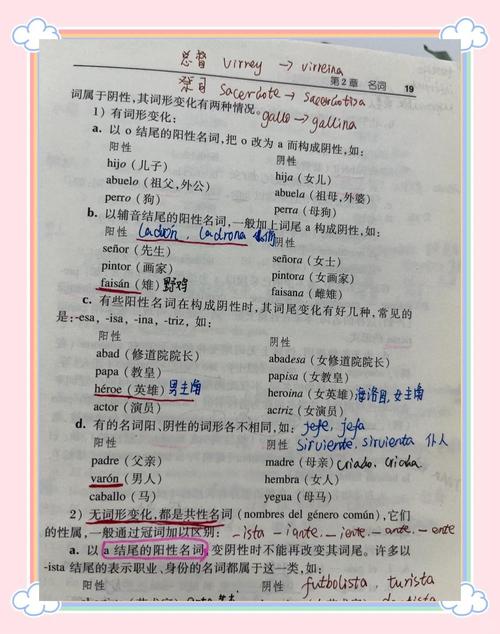 总督 virrey → virreina
第2章 名词 19
祭司 sacerdote → sacerdotisa
词属于阴性,其词形变化有两种情况。
gallo → gallina
1) 有词形变化:
a. 以 o 结尾的阳性名词,把 o 改为 a 而构成阴性,如:
阳性 阴性
hijo (儿子) hija (女儿)
abuelo (祖父,外公) abuela (祖母,外婆)
perro (狗) perra (母狗)
b. 以辅音结尾的阳性名词,一般加上词尾 a 构成阴性,如:
阳性 ladrón, ladrona 阴性
señor (先生) señora (女士)
pintor (画家) pintora (女画家)
faisán (雉) 野鸡 faisana (雌雉)
c. 有些阳性名词在构成阴性时,其词尾变化有好几种,常见的
是:-esa, -isa, -ina, -triz, 如:
阳性 阴性
abad (修道院院长) abadesa (女修道院院长)
papa (教皇) papisa (女教皇)
héroe (英雄) 男主角 heroina (女英雄) 海洛因,女主角
actor (演员) actriz (女演员)
d. 有的名词阳、阴性的词形各不相同,如: jefe, jefa
阳性 阴性 sirviente, sirvienta 仆人
padre (父亲) madre (母亲) criado, criada
varón (男人) hembra (女人)
caballo (马) yegua (母马)
2) 无词形变化,都是共性名词 (nombres del género común),它们
的性属,一般通过冠词加以区别: -ista -iante -iente -ante -ente
a. 以 a 结尾的阳性名词,变阴性时不能再改变其词尾。许多以
-ista 结尾的表示职业、身份的名词都属于这一类,如:
阳性 阴性 futbolista, turista